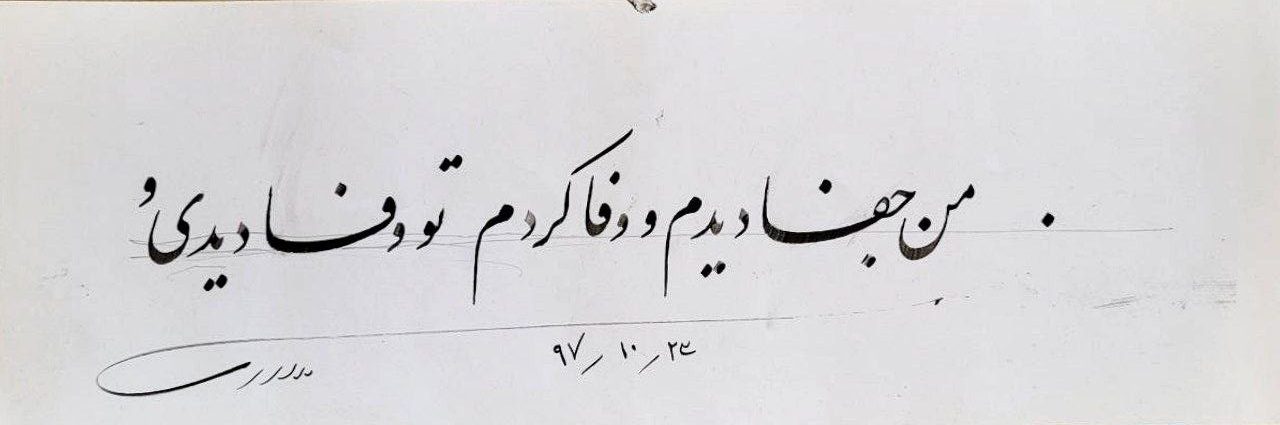 من جفا دیدم و وفا کردم تو وفا دیدی وُ
۹۷٫۱۰٫۲۳